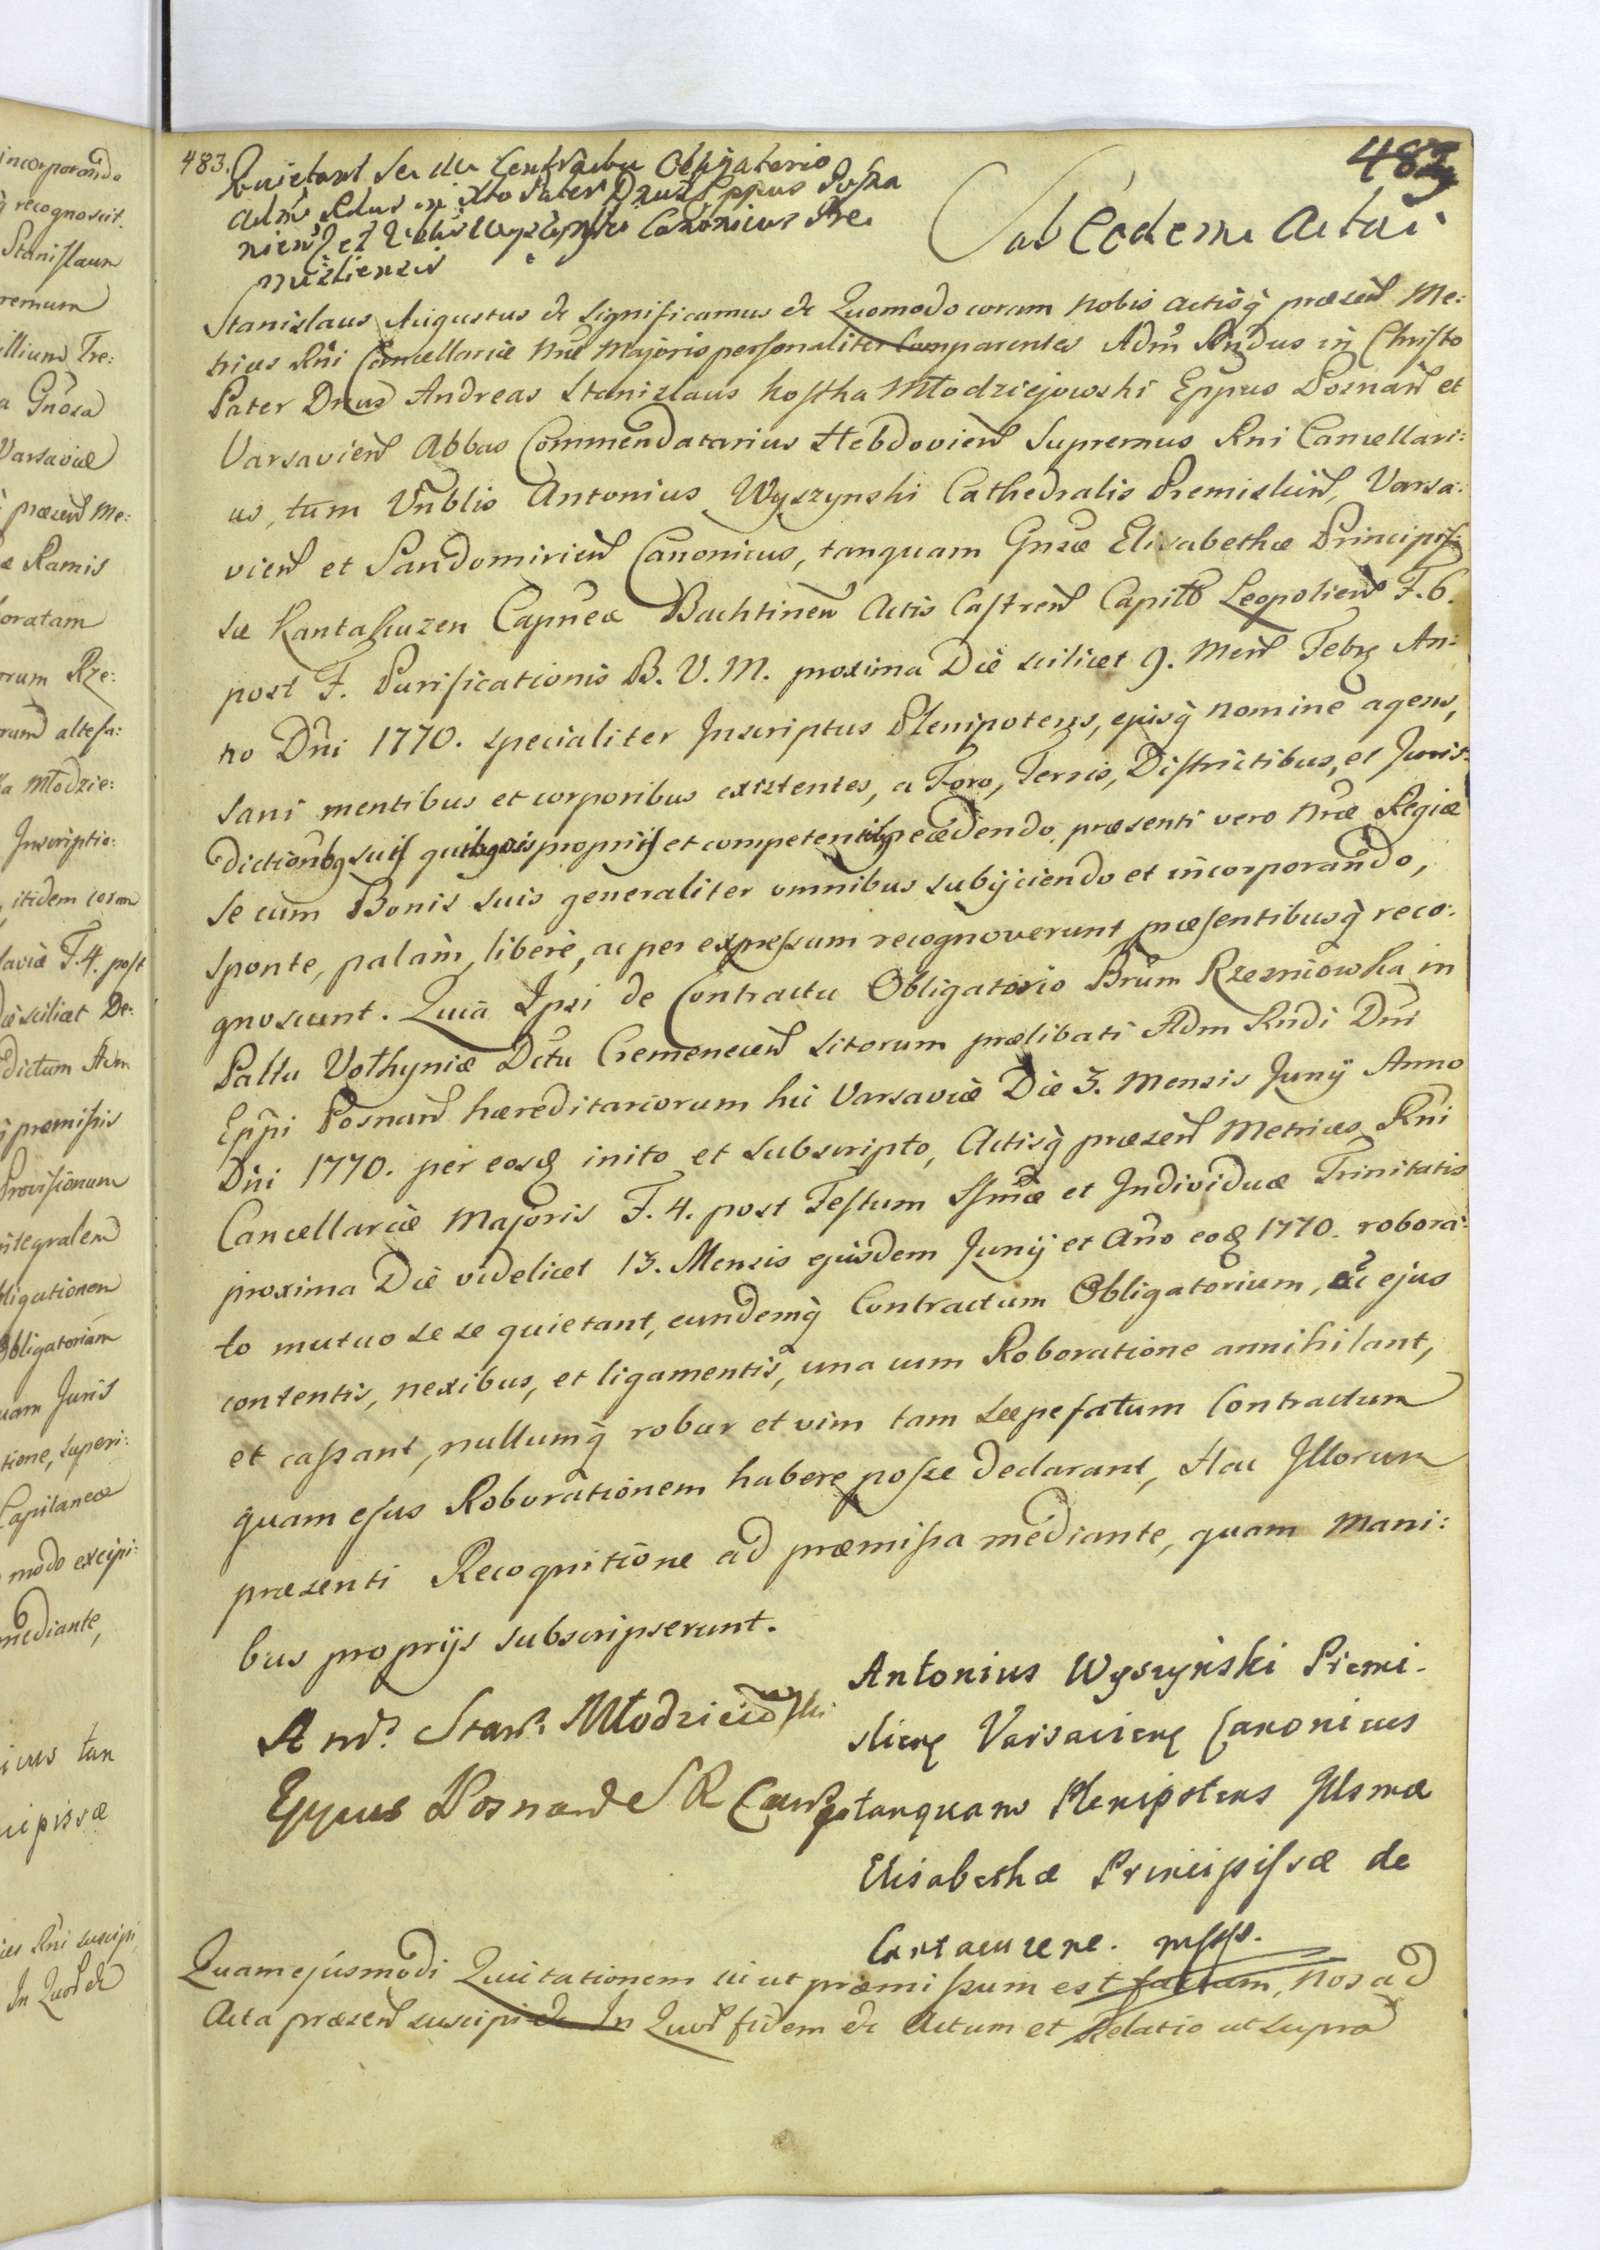 483.
483
Quietant se de Contractu Obligatorio
Adm Rdus in Xto Pater Dnus Eppus Posna
nien et Wyszynski Canonicus Pre
misliensis
Sub Eodem Actu
Stanislaus Augustus &c Significamus &c Quomodo coram Nobis actisq̀ præsen̄ Me:
trices Rni Cancellariæ Nræ Majoris personaliter Comparentes Adm̄ Rndus in Christo
Pater Dnus Andreas Stanislaus Kostka Młodziejowski Eppus Posnan̄ et
Varsavien̄ Abbas Commendatarius Hebdovien̄ Supremus Rni Cancellari:
us, tum Vnblis Antonius Wyszynski Cathedralis Premislien̄, Varsa:
vien̄ et Sandomirien̄ Canonicus, tanquam Gnsæ Elisabethæ Principis:
sæ Kantakuzen Capnea Bachtinen̄ Actis Castren̄ Capitb Leopolien̄ F. 6.
post F. Purificationis B. V. M. proxima Die scilicet 9. Men̄ Febr An:
no Dni 1770. specialiter Inscriptus Plenipotens, ejusq̀ nomine agens,
sani mentibus et corporibus existentes, a Foro, Terris, Districtibus, et Juris:
dictionbg suis quibgvis proprijs et competentibg recedendo, præsenti vero Nræ Regiæ
se cum Bonis suis generaliter omnibus subijciendo et incorporando,
sponte, palàm, liberè, ac per expressum recognoverunt præsentibusq̀ reco:
gnoscunt. Quia Ipsi de Contractu Obligatorio Bnum Rzesniowka in
Paltu Volhyniæ Dctu Cremenecen̄ sitorum prælibati Adm Rndi Dni
Eppi Posnan̄ hæreditariorum hic Varsaviæ Die 3. Mensis Junij Anno
Dni 1770. per eosd inito et subscripto, Actisq̀ præsen̄ Metrices Rni
Cancellariæ Majoris F. 4. post Festum Ssmæ et Individuæ Trinitatis
proxima Die videlicet 13. Mensis ejusdem Junij et Ano eod 1770. robora:
to mutuo sese quietant, eundemq̀ Contractum Obligatorium, ac ejus
contentis, nexibus, et ligamentis, una cum Roboratione annihilant,
et cassant, nullumq̀ robur et vim tam sæpefatum Contractum
quam ejus Roborationem habere posse declarant, Hac Illorum
præsenti Recognitione ad præmissa mediante, quam Mani:
bus proprijs subscripserunt.
And. Stan. Młodzieiowski
Eppus Posnan S R Canc
Antonius Wyszyński Premi-
slien Varsavien Canonicus
tanquam Plenipotens Illsmæ
Elisabethæ Principissæ de
Cantacuzene. mpp.
Quam ejusmodi Quietationem uti ut præmissum est factam, Nos ad
Acta præsen̄ suscipi &c In Quor̄ fidem &c Actum et Relatio ut supra
incorporando
q̀ recognoscit.
Stanislaum
remum
illium Tre:
a Gnosa
Varsaviæ
præsen̄ Me:
æ Ramis
oratam
orum Rze:
rum altefa:
ka Młodzie:
Inscriptio:
, itidem coram
saviæ F. 4. post
Die scilicet De:
dictum Adm
præmissis
Provisionum
integralem
bligationem
Obligatoriam
uam Juris
tione, superi:
Capitaneæ
modo excipi:
mediante,
icus tan
cipissæ
ces Rni suscipi
In Quor̄ &c